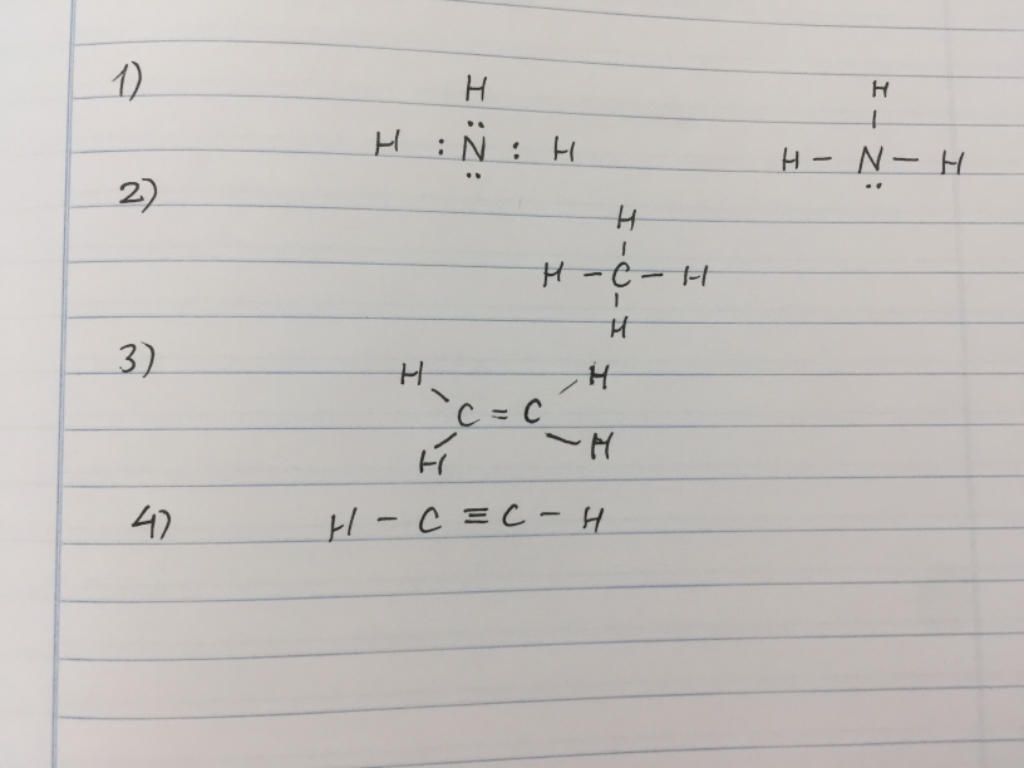 1)
H H
H : N̈ : H H – N – H
2)
H
H – C – H
H
3)
H H
C = C
H H
4) H – C ≡ C – H